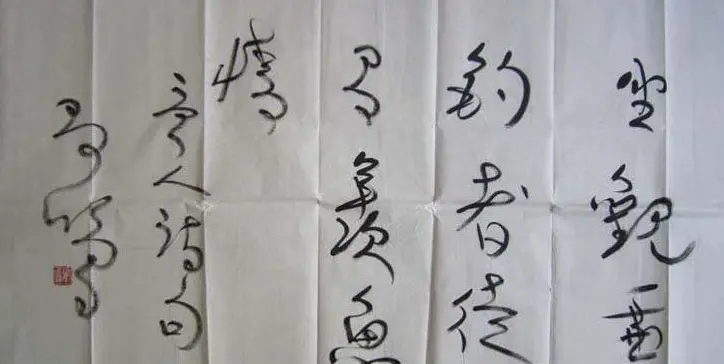 坐觀垂
釣者徒
有羨魚
情
唐人詩句